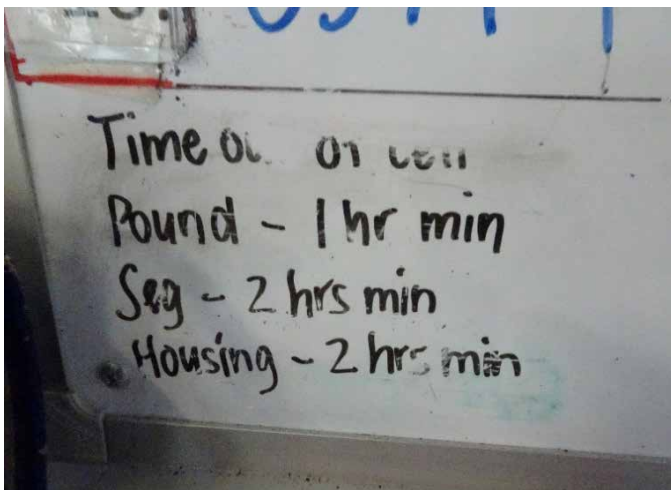 Time of cell
Pound - 1 hr min
Seg - 2 hrs min
Housing - 2 hrs min